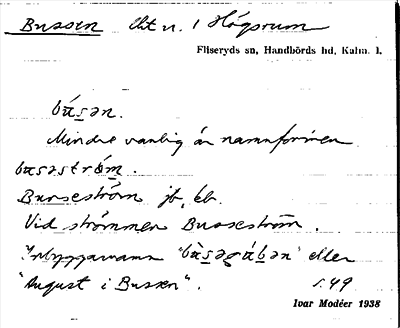 Bussen lht u. / Högsrum
Fliseryds sn, Handbörds hd, Kalm. l.
bu̇sən.
Mindre vanlig är namnformen
busəström.
Busseström jb, kb.
Vid strömmen Busseström.
Inbyggarnamn "bùsəgùbən" eller
"August i Bussen". s. 49
Ivar Modéer 1938